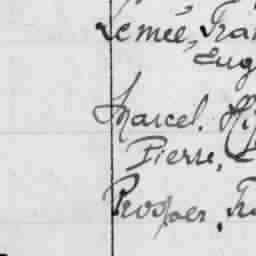 Lemée, Fran
Eug
Marcel. Hi
Pierre,
Prosper, Fr